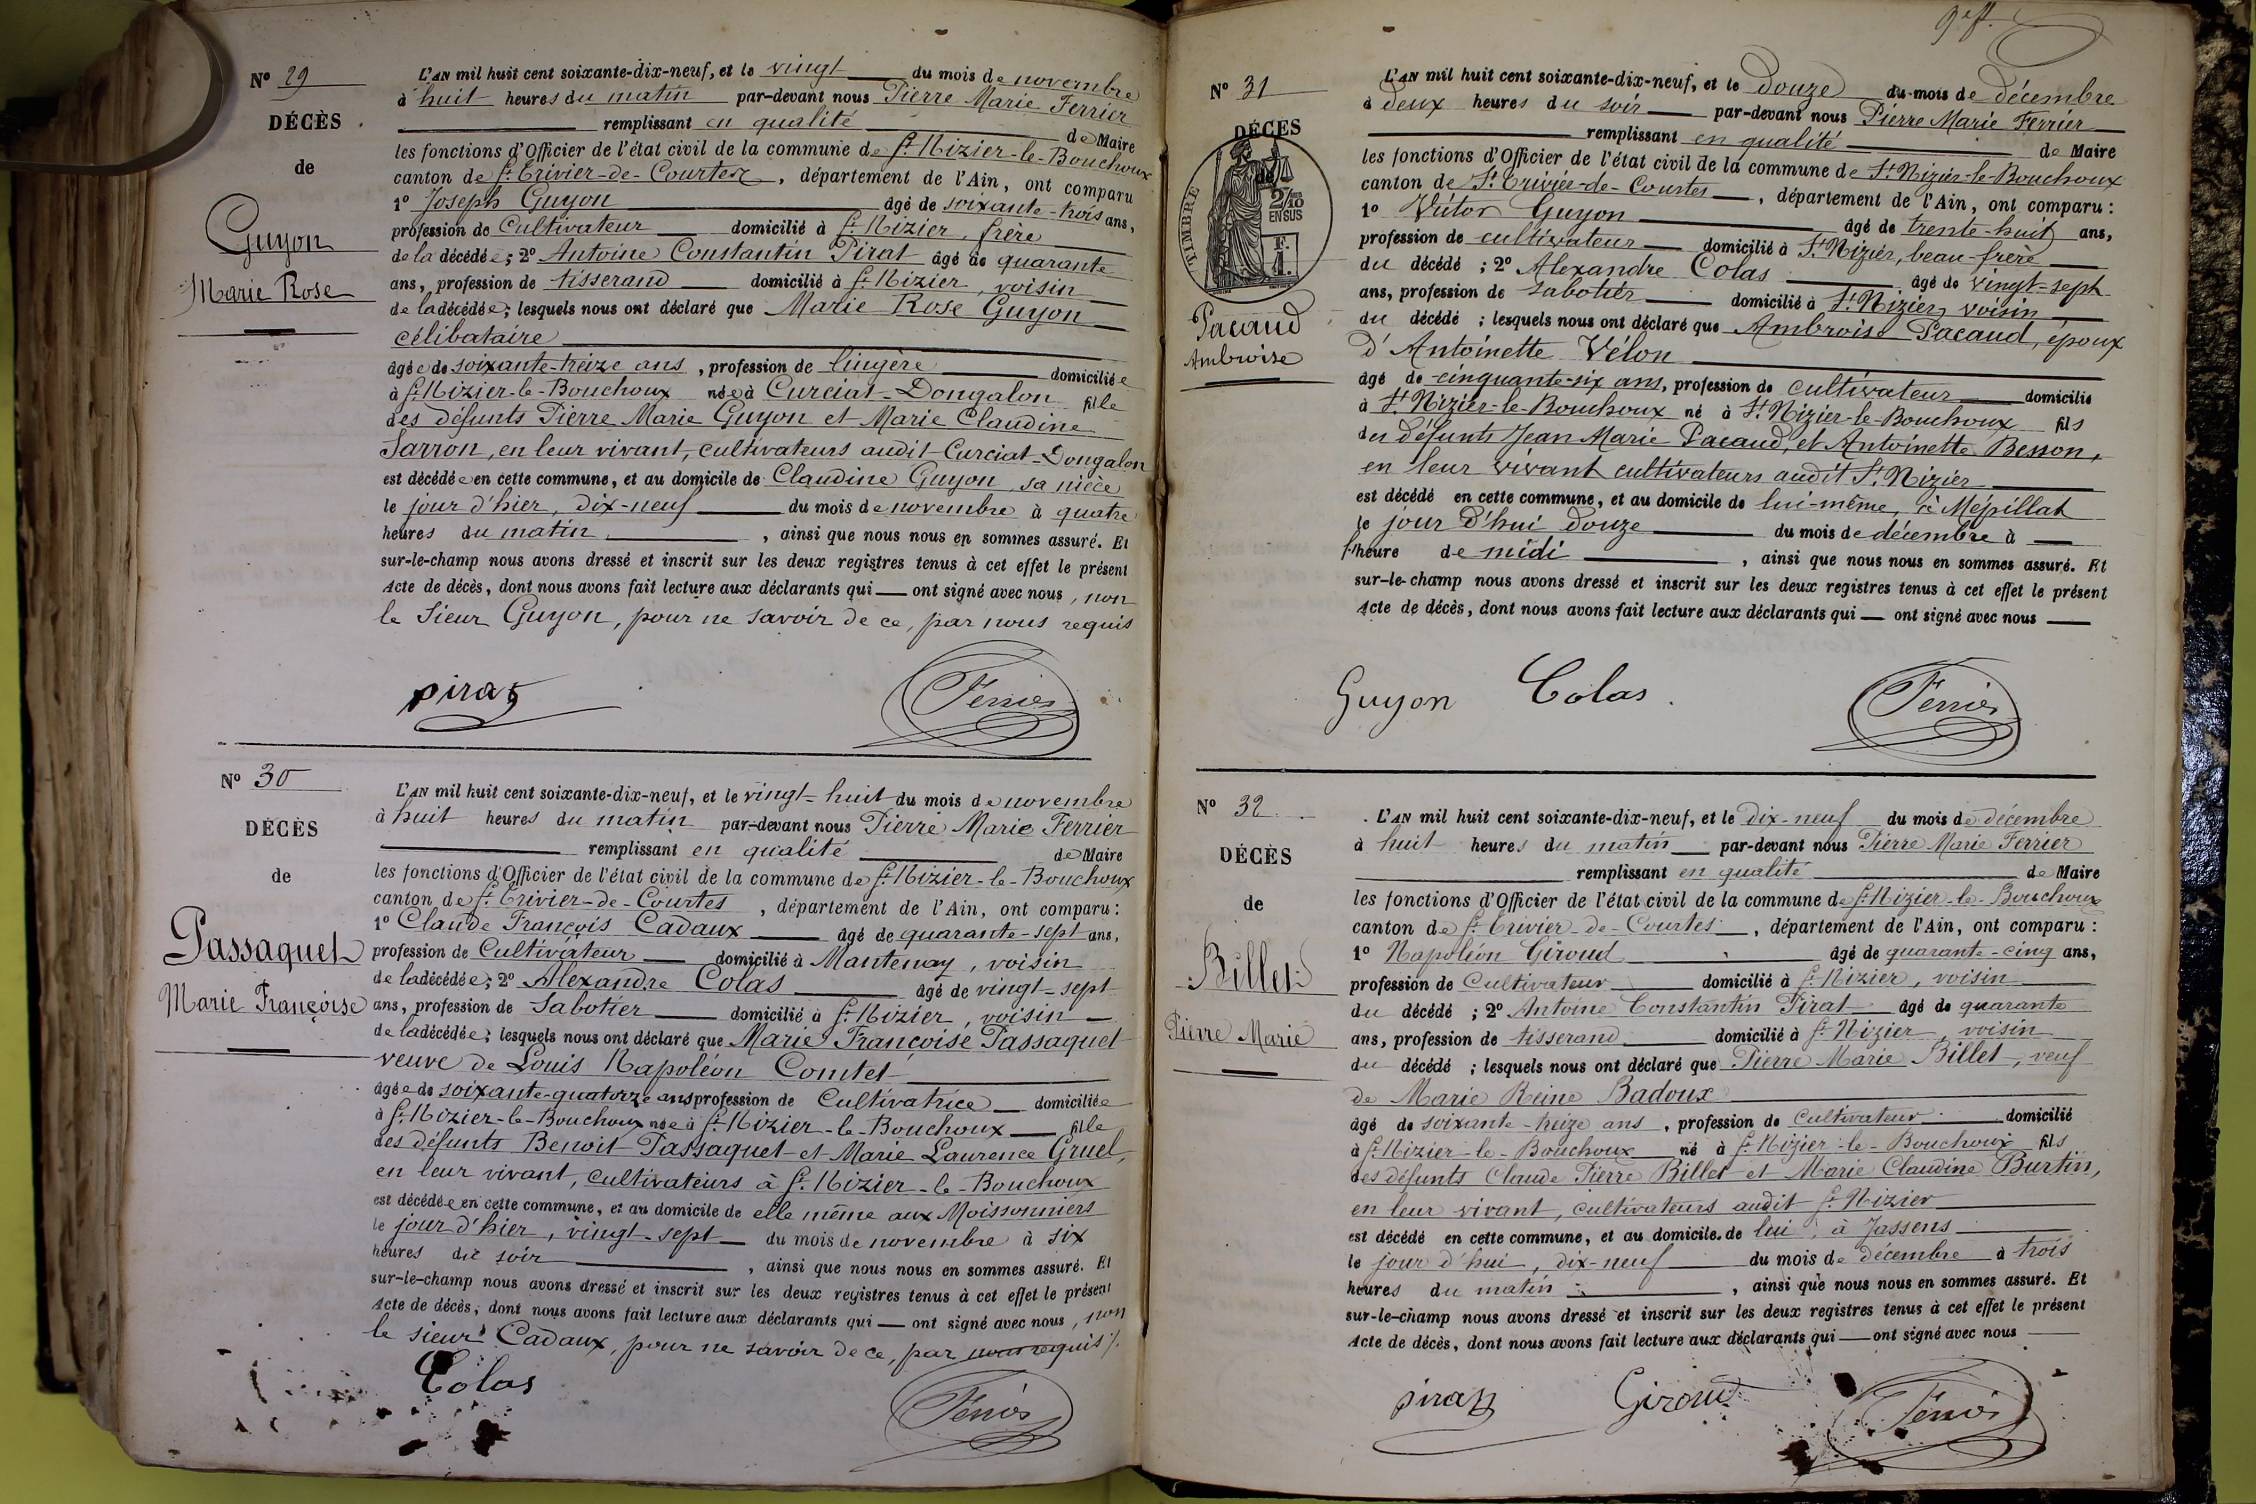 Nº 29
DÉCÈS
de
Guyon
Marie Rose
L'AN mil huit cent soixante-dix-neuf, et le vingt du mois de novembre
à huit heures du matin par-devant nous Pierre Marie Ferrier
remplissant en qualité de Maire
les fonctions d'Officier de l'état civil de la commune de St Nizier-le-Bouchoux
canton de St Trivier-de-Courtes, département de l'Ain, ont comparu
1º Joseph Guyon âgé de soixante-trois ans,
profession de Cultivateur domicilié à St Nizier, frère
de la décédée; 2º Antoine Constantin Pirat âgé de quarante
ans, profession de tisserand domicilié à St Nizier, voisin
de la décédée; lesquels nous ont déclaré que Marie Rose Guyon
célibataire
âgée de soixante-treize ans, profession de lingère domiciliée
à St Nizier-le-Bouchoux née à Curciat-Dongalon fille
des défunts Pierre Marie Guyon et Marie Claudine
Sarron, en leur vivant, cultivateurs audit Curciat-Dongalon
est décédée en cette commune, et au domicile de Claudine Guyon, sa nièce
le jour d'hier, dix-neuf du mois de novembre à quatre
heures du matin, ainsi que nous nous en sommes assuré. Et
sur-le-champ nous avons dressé et inscrit sur les deux registres tenus à cet effet le présent
Acte de décès, dont nous avons fait lecture aux déclarants qui — ont signé avec nous, non
le sieur Guyon, pour ne savoir de ce, par nous requis
pirat Ferrier
Nº 30
DÉCÈS
de
Passaquet
Marie Françoise
L'AN mil huit cent soixante-dix-neuf, et le vingt-huit du mois de novembre
à huit heures du matin par-devant nous Pierre Marie Ferrier
remplissant en qualité de Maire
les fonctions d'Officier de l'état civil de la commune de St Nizier-le-Bouchoux
canton de St Trivier-de-Courtes, département de l'Ain, ont comparu:
1º Claude François Cadaux âgé de quarante-sept ans,
profession de Cultivateur domicilié à Mantenay, voisin
de la décédée; 2º Alexandre Colas âgé de vingt-sept
ans, profession de Sabotier domicilié à St Nizier, voisin
de la décédée; lesquels nous ont déclaré que Marie Françoise Passaquet
veuve de Louis Napoléon Comtet
âgée de soixante-quatorze ans profession de Cultivatrice domiciliée
à St Nizier-le-Bouchoux née à St Nizier-le-Bouchoux fille
des défunts Benoit Passaquet et Marie Laurence Gruel,
en leur vivant, cultivateurs à St Nizier-le-Bouchoux
est décédée en cette commune, et au domicile de elle même aux Moissonniers
le jour d'hier, vingt-sept du mois de novembre à six
heures du soir, ainsi que nous nous en sommes assuré. Et
sur-le-champ nous avons dressé et inscrit sur les deux registres tenus à cet effet le présent
Acte de décès, dont nous avons fait lecture aux déclarants qui — ont signé avec nous, non
le sieur Cadaux, pour ne savoir de ce, par nous requis /.
Colas Ferrier
Nº 31
DÉCÈS
de
TIMBRE
2/10
EN SUS
F.
1.
Pacaud
Ambroise
L'AN mil huit cent soixante-dix-neuf, et le douze du mois de décembre
à deux heures du soir par-devant nous Pierre Marie Ferrier
remplissant en qualité de Maire
les fonctions d'Officier de l'état civil de la commune de St Nizier-le-Bouchoux
canton de St Trivier-de-Courtes, département de l'Ain, ont comparu:
1º Victor Guyon âgé de trente-huit ans,
profession de cultivateur domicilié à St Nizier, beau-frère
du décédé; 2º Alexandre Colas âgé de vingt-sept
ans, profession de sabotier domicilié à St Nizier, voisin
du décédé; lesquels nous ont déclaré que Ambroise Pacaud, époux
d'Antoinette Vélon
âgé de cinquante-six ans, profession de cultivateur domicilié
à St Nizier-le-Bouchoux né à St Nizier-le-Bouchoux fils
des défunts Jean Marie Pacaud, et Antoinette Besson,
en leur vivant cultivateurs audit St Nizier
est décédé en cette commune, et au domicile de lui-même, à Mépillat
le jour d'hui douze du mois de décembre à
l'heure de midi, ainsi que nous nous en sommes assuré. Et
sur-le-champ nous avons dressé et inscrit sur les deux registres tenus à cet effet le présent
Acte de décès, dont nous avons fait lecture aux déclarants qui — ont signé avec nous
Guyon Colas. Ferrier
Nº 32
DÉCÈS
de
Billet
Pierre Marie
L'AN mil huit cent soixante-dix-neuf, et le dix-neuf du mois de décembre
à huit heures du matin par-devant nous Pierre Marie Ferrier
remplissant en qualité de Maire
les fonctions d'Officier de l'état civil de la commune de St Nizier-le-Bouchoux
canton de St Trivier-de-Courtes, département de l'Ain, ont comparu:
1º Napoléon Giroud âgé de quarante-cinq ans,
profession de Cultivateur domicilié à St Nizier, voisin
du décédé; 2º Antoine Constantin Pirat âgé de quarante
ans, profession de tisserand domicilié à St Nizier, voisin
du décédé; lesquels nous ont déclaré que Pierre Marie Billet, veuf
de Marie Reine Badoux
âgé de soixante-treize ans, profession de Cultivateur domicilié
à St Nizier-le-Bouchoux né à St Nizier-le-Bouchoux fils
des défunts Claude Pierre Billet et Marie Claudine Burtin,
en leur vivant, cultivateurs audit St Nizier
est décédé en cette commune, et au domicile de lui, à Jassens
le jour d'hui, dix-neuf du mois de décembre à trois
heures du matin, ainsi que nous nous en sommes assuré. Et
sur-le-champ nous avons dressé et inscrit sur les deux registres tenus à cet effet le présent
Acte de décès, dont nous avons fait lecture aux déclarants qui — ont signé avec nous
pirat Giroud Ferrier